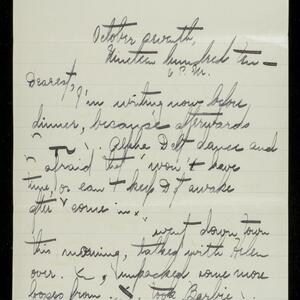 October seventh,
Nineteen hundred ten—
6 P.M.
Dearest,
I'm writing now before
dinner, because afterwards
Alpha Delt dance and
afraid that won't have
time, or can't keep awake
after come in.
went down town
this morning, talked with Helen
over. unpacked some more
boxes from took Barbie